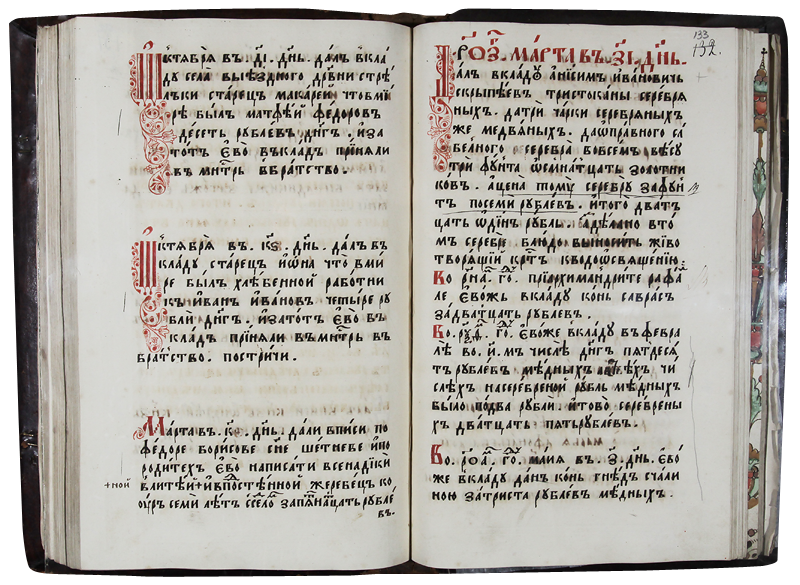 Ѻктѧбрѧ въ. д҃і. дн҃ь. далъ вкла
ду села выѣздного дрвни стрѣ
лъки старецъ макарей что вми
рѣ былъ матѳѣй ѳедоровъ
десеть рублевъ днгъ. иза
тотъ ево вкладъ приняли
въ мнтрь вбратство.
Ѻктѧбрѧ въ. к҃ѕ. дн҃ь. далъ въ
кладу старецъ иѡна что вми
ре былъ хлѣбенной работни
къ иванъ ивановъ четыре ру
бли днгъ. изатотъ ево въ
кладъ приняли въмнтрь въ
братство. постричи.
Марта въ. к҃ѕ. дн҃ь. дали вписи по
ѳедоре борисове сне шетневе ипо
родителех ево написати всенадики
+ной
влитеи+ивпостенной жеребецъ ко
оуръ семи летъ запѧтнатцать рубле
въ.
133
132.
марта въ. з҃і. днь.
далъ вкладу анисимъ ивановичь
скрыпѣевъ три стоканы серебря
ныхъ. датри чарки серебряныхъ
же медвяныхъ. даѡправного са
беѧного серебра вовсемъ вѣсу
три фунта ѡсмнатцать золотни
ковъ. ацена тому серебру зафун
тъ посеми рублевъ. итого дват
цать ѡдинъ рубль. аздѣлано вто
мъ серебре блюдо выносить живо
творящий крстъ кводоѡсвящению:
Во. го. приархимандрите рафаи
ле евожъ вкладу конь саврасъ
задватцать рублевъ.
Во. го. евоже вкладу въ феврa
лѣ во. и. мъ числѣ днгъ пятдеся
тъ рублевъ мѣдныхъ чи
слѣхъ насеребреной рубль мѣдныхъ
было подва рубли. итово серебрены
хъ дватцать пять рублевъ.
Во. го. маиѧ въ. з. днь. ево
же вкладу данъ конь гнѣдъ счали
ною затриста рублевъ мѣдныхъ.